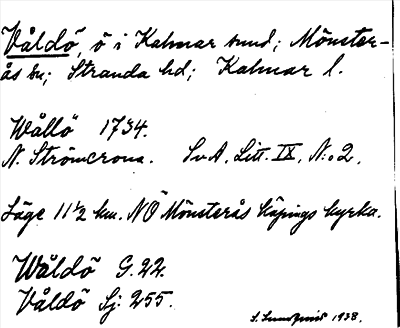 Våldö, ö i Kalmar sund; Mönster-
ås sn; Stranda hd; Kalmar l.
Wållö 1734.
N. Strömcrona. SvA. Litt. IX, N:o 2.
Läge 11 1/2 km. NÖ Mönsterås köpings kyrka.
Wåldö G. 22.
Våldö Sj. 255.
S. Lundqvist 1938.